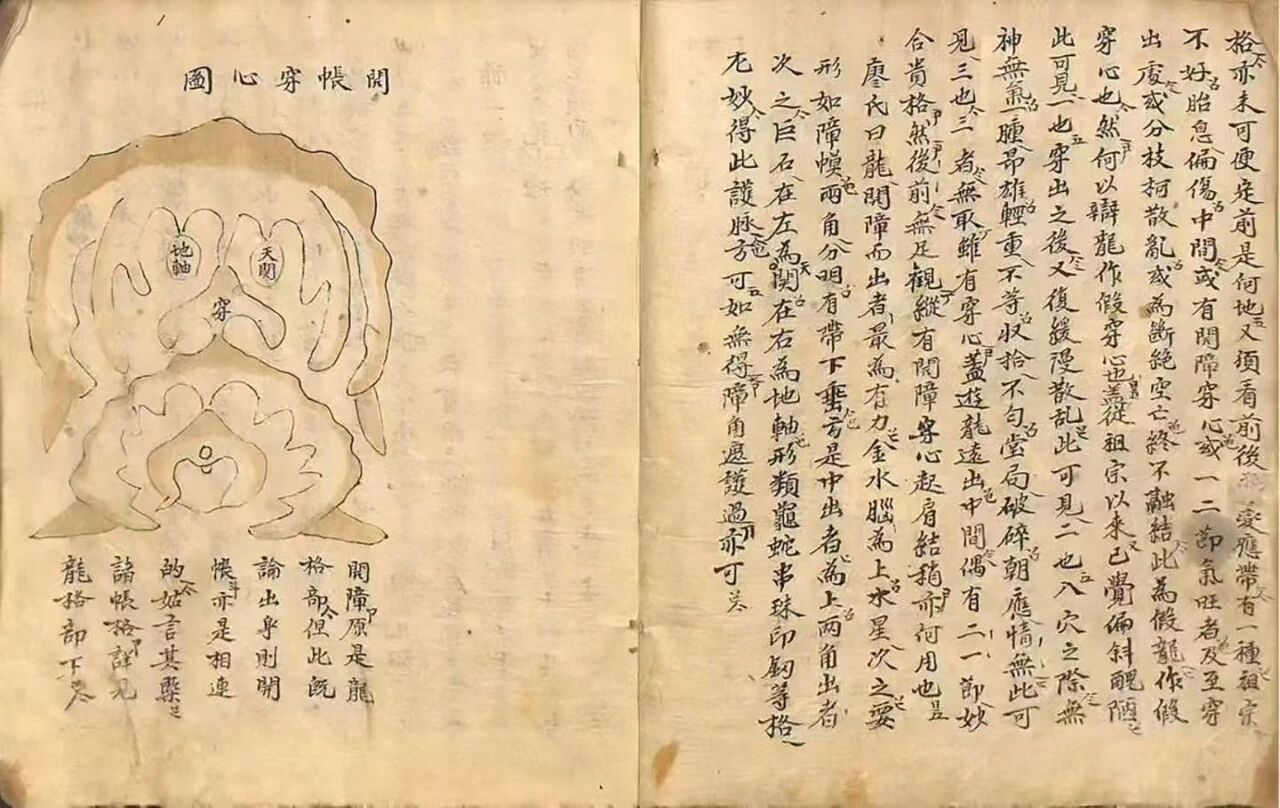 格亦未可便定前是何地又須看前後變應帶有一種祖宗
不好胎息偏傷中間或有開障穿心或一二節氣旺者及至穿
出處或分枝柯散亂或為斷絕空亡終不融結此為假龍作假
穿心也然何以辯龍作假穿心也蓋從祖宗以來已覺偏斜醜陋
此可見一也穿出之後又復緩漫散乱此可見二也入穴之際無
神無氣一臃昂雄輕重不等収拾不勻堂局破碎朝應情無此可
見三也三者無取雖有穿心蓋遊龍遠出中間偶有二一節妙
合貴格然後前無足觀縱有開障穿心起肩結稍亦何用也
廖氏曰龍開障而出者最為有力金水腦為上水星次之要
形如障幙兩角分明有帶下垂方是中出者為上兩角出者
次之巨石在左為天関在右為地軸形類龜蛇串珠印劔等格
尤妙得此護脉方可如無得障角遮護過亦可
開帳穿心圖
天関
地軸
穿
開障原是龍
格部但此既
論出身則開
帳亦是相連
的姑言其槩
諸帳格詳見
龍格部下